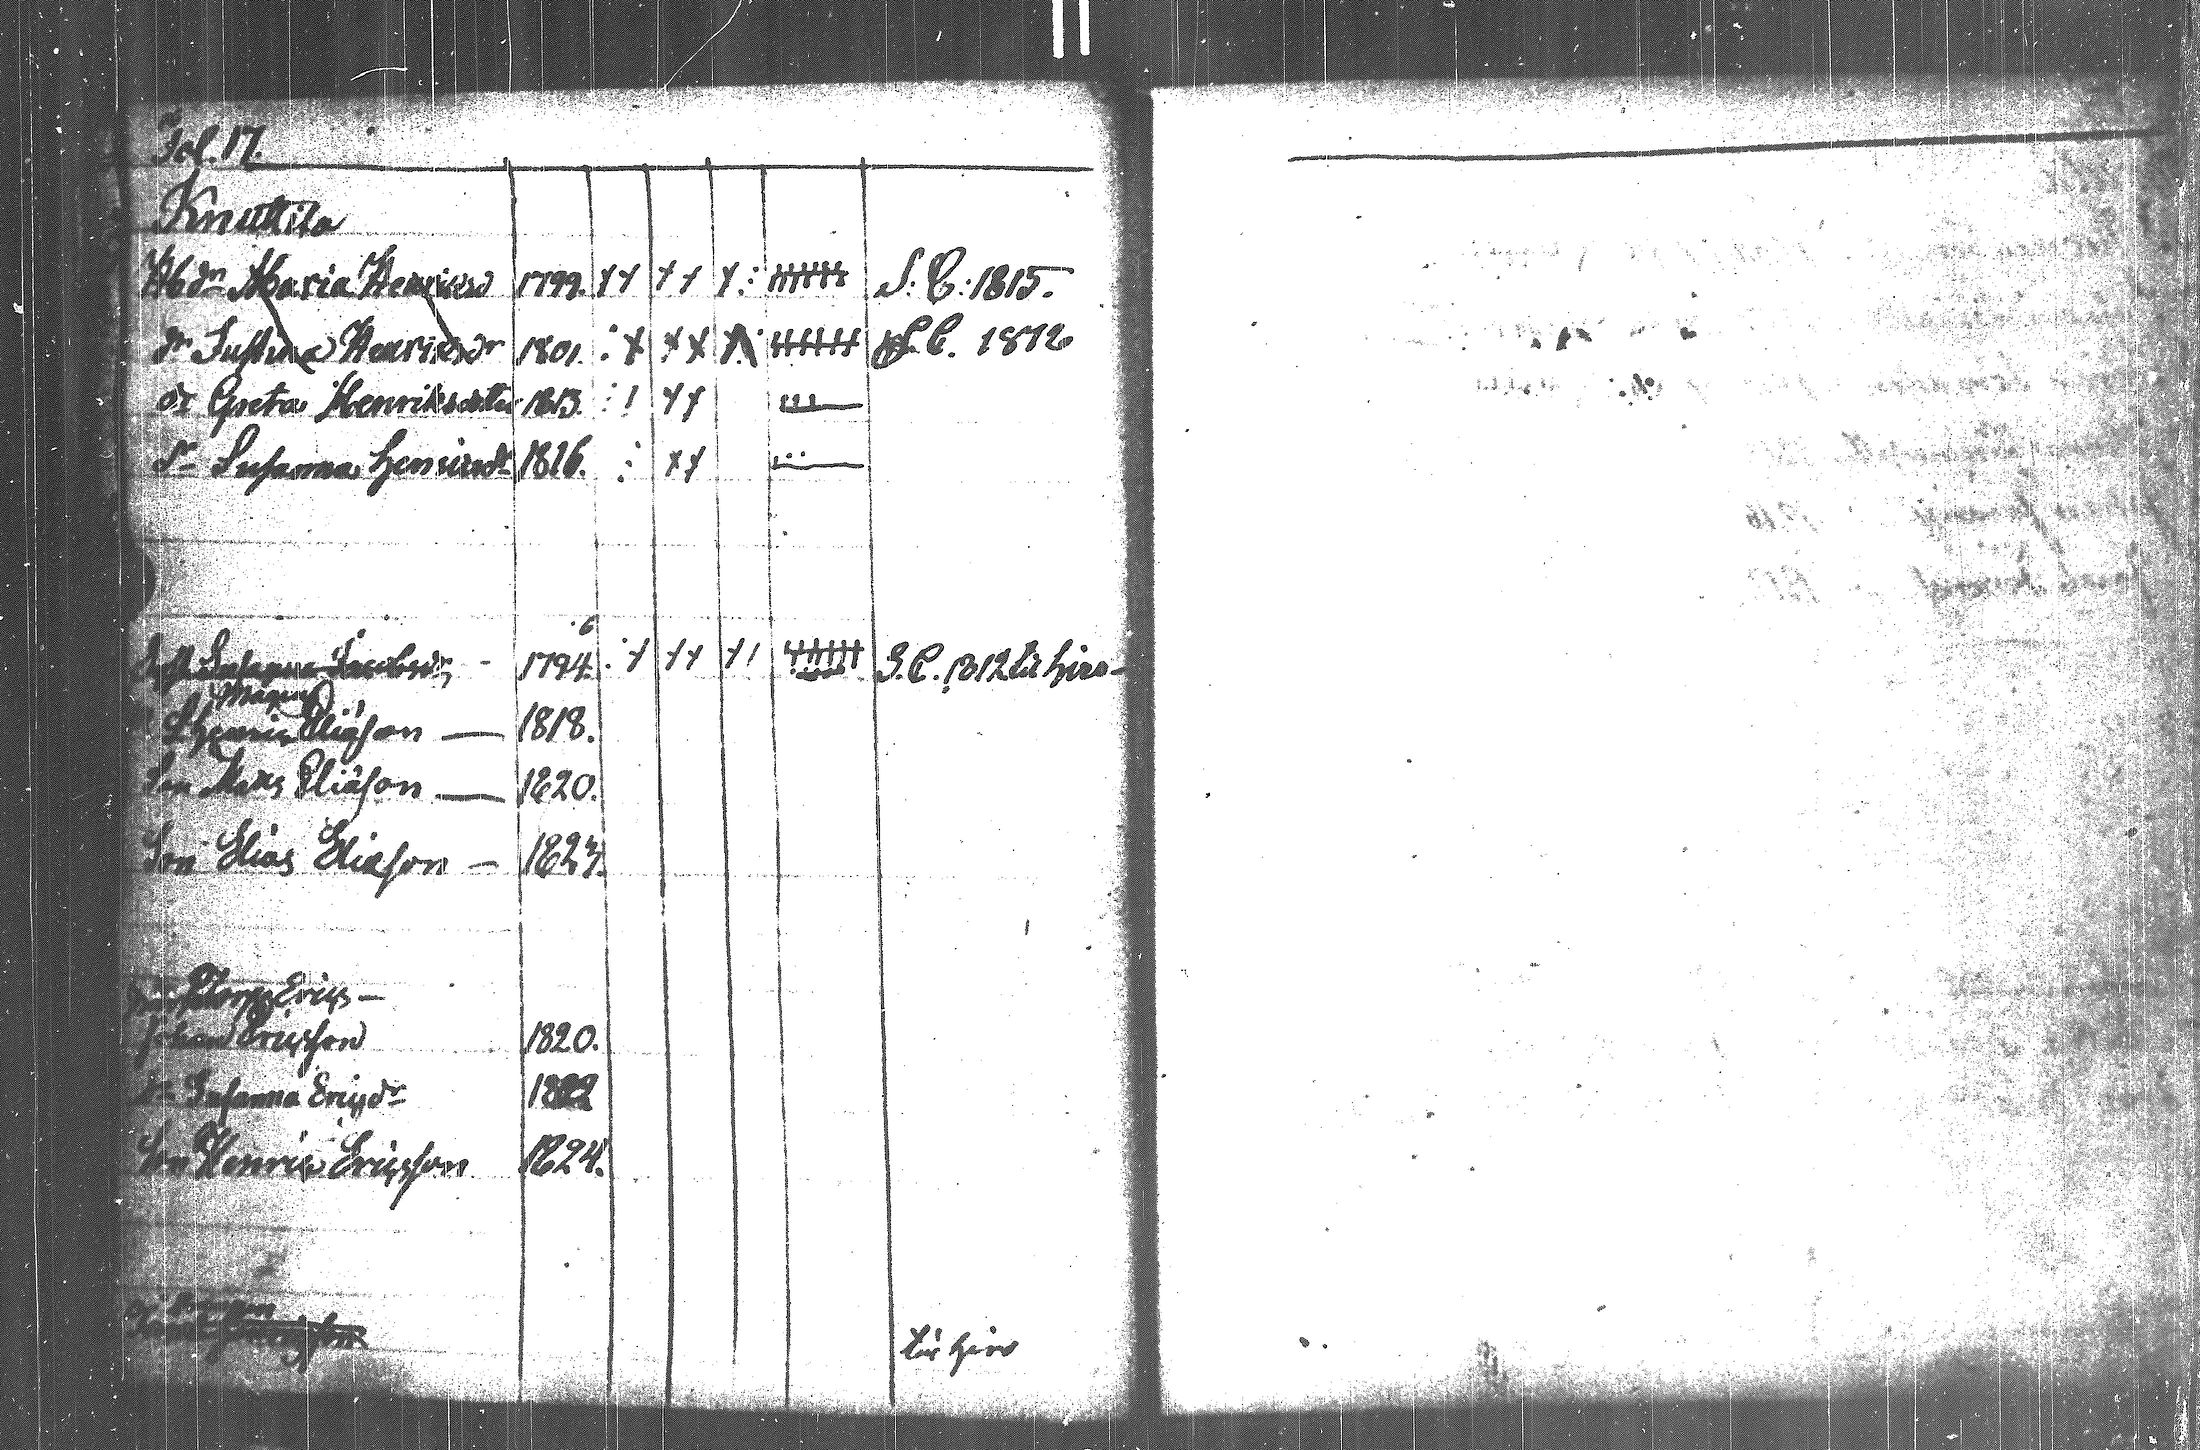 Fol. 17.
Knuttila
Maria Henricsd 1799. S. C. 1815.
dr Justina Henricsdr 1801. S. C. 1812
dr Greta Henriksdotter 1813.
dr Susanna Henricsdr 1816.
6
Susanna Jacobsdr 1794. S. C. 1812 till Hiro
Henric Eliasson 1818.
Son Mats Eliasson 1820.
Son Elias Eliasson 1823.
Erics
Johan Ericsson 1820.
dr Susanna Ericsdr 1822
Son Henric Ericsson 1824.
till Hiro